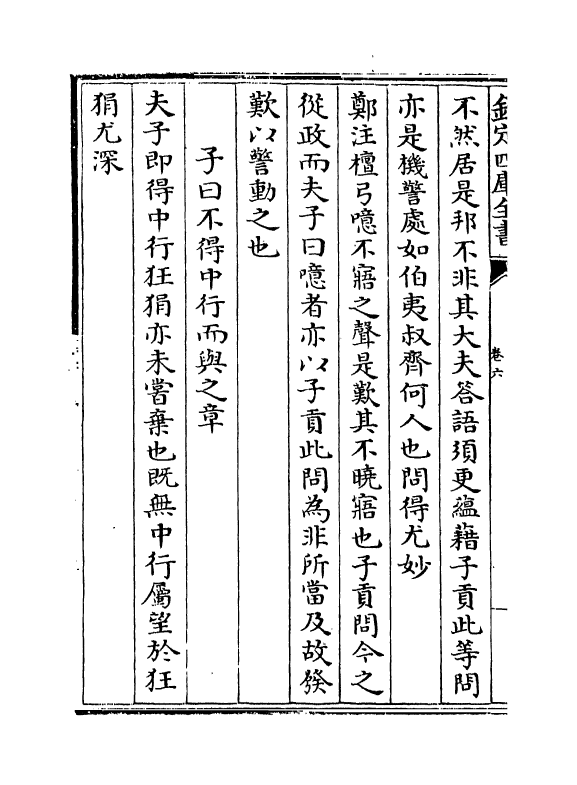 欽定四庫全書
卷六
不然居是邦不非其大夫答語須更蘊藉子貢此等問
亦是機警處如伯夷叔齊何人也問得尤妙
鄭注檀弓噫不寤之聲是歎其不曉寤也子貢問今之
從政而夫子曰噫者亦以子貢此問為非所當及故發
歎以警動之也
子曰不得中行而與之章
夫子即得中行狂狷亦未嘗棄也既無中行屬望於狂
狷尤深